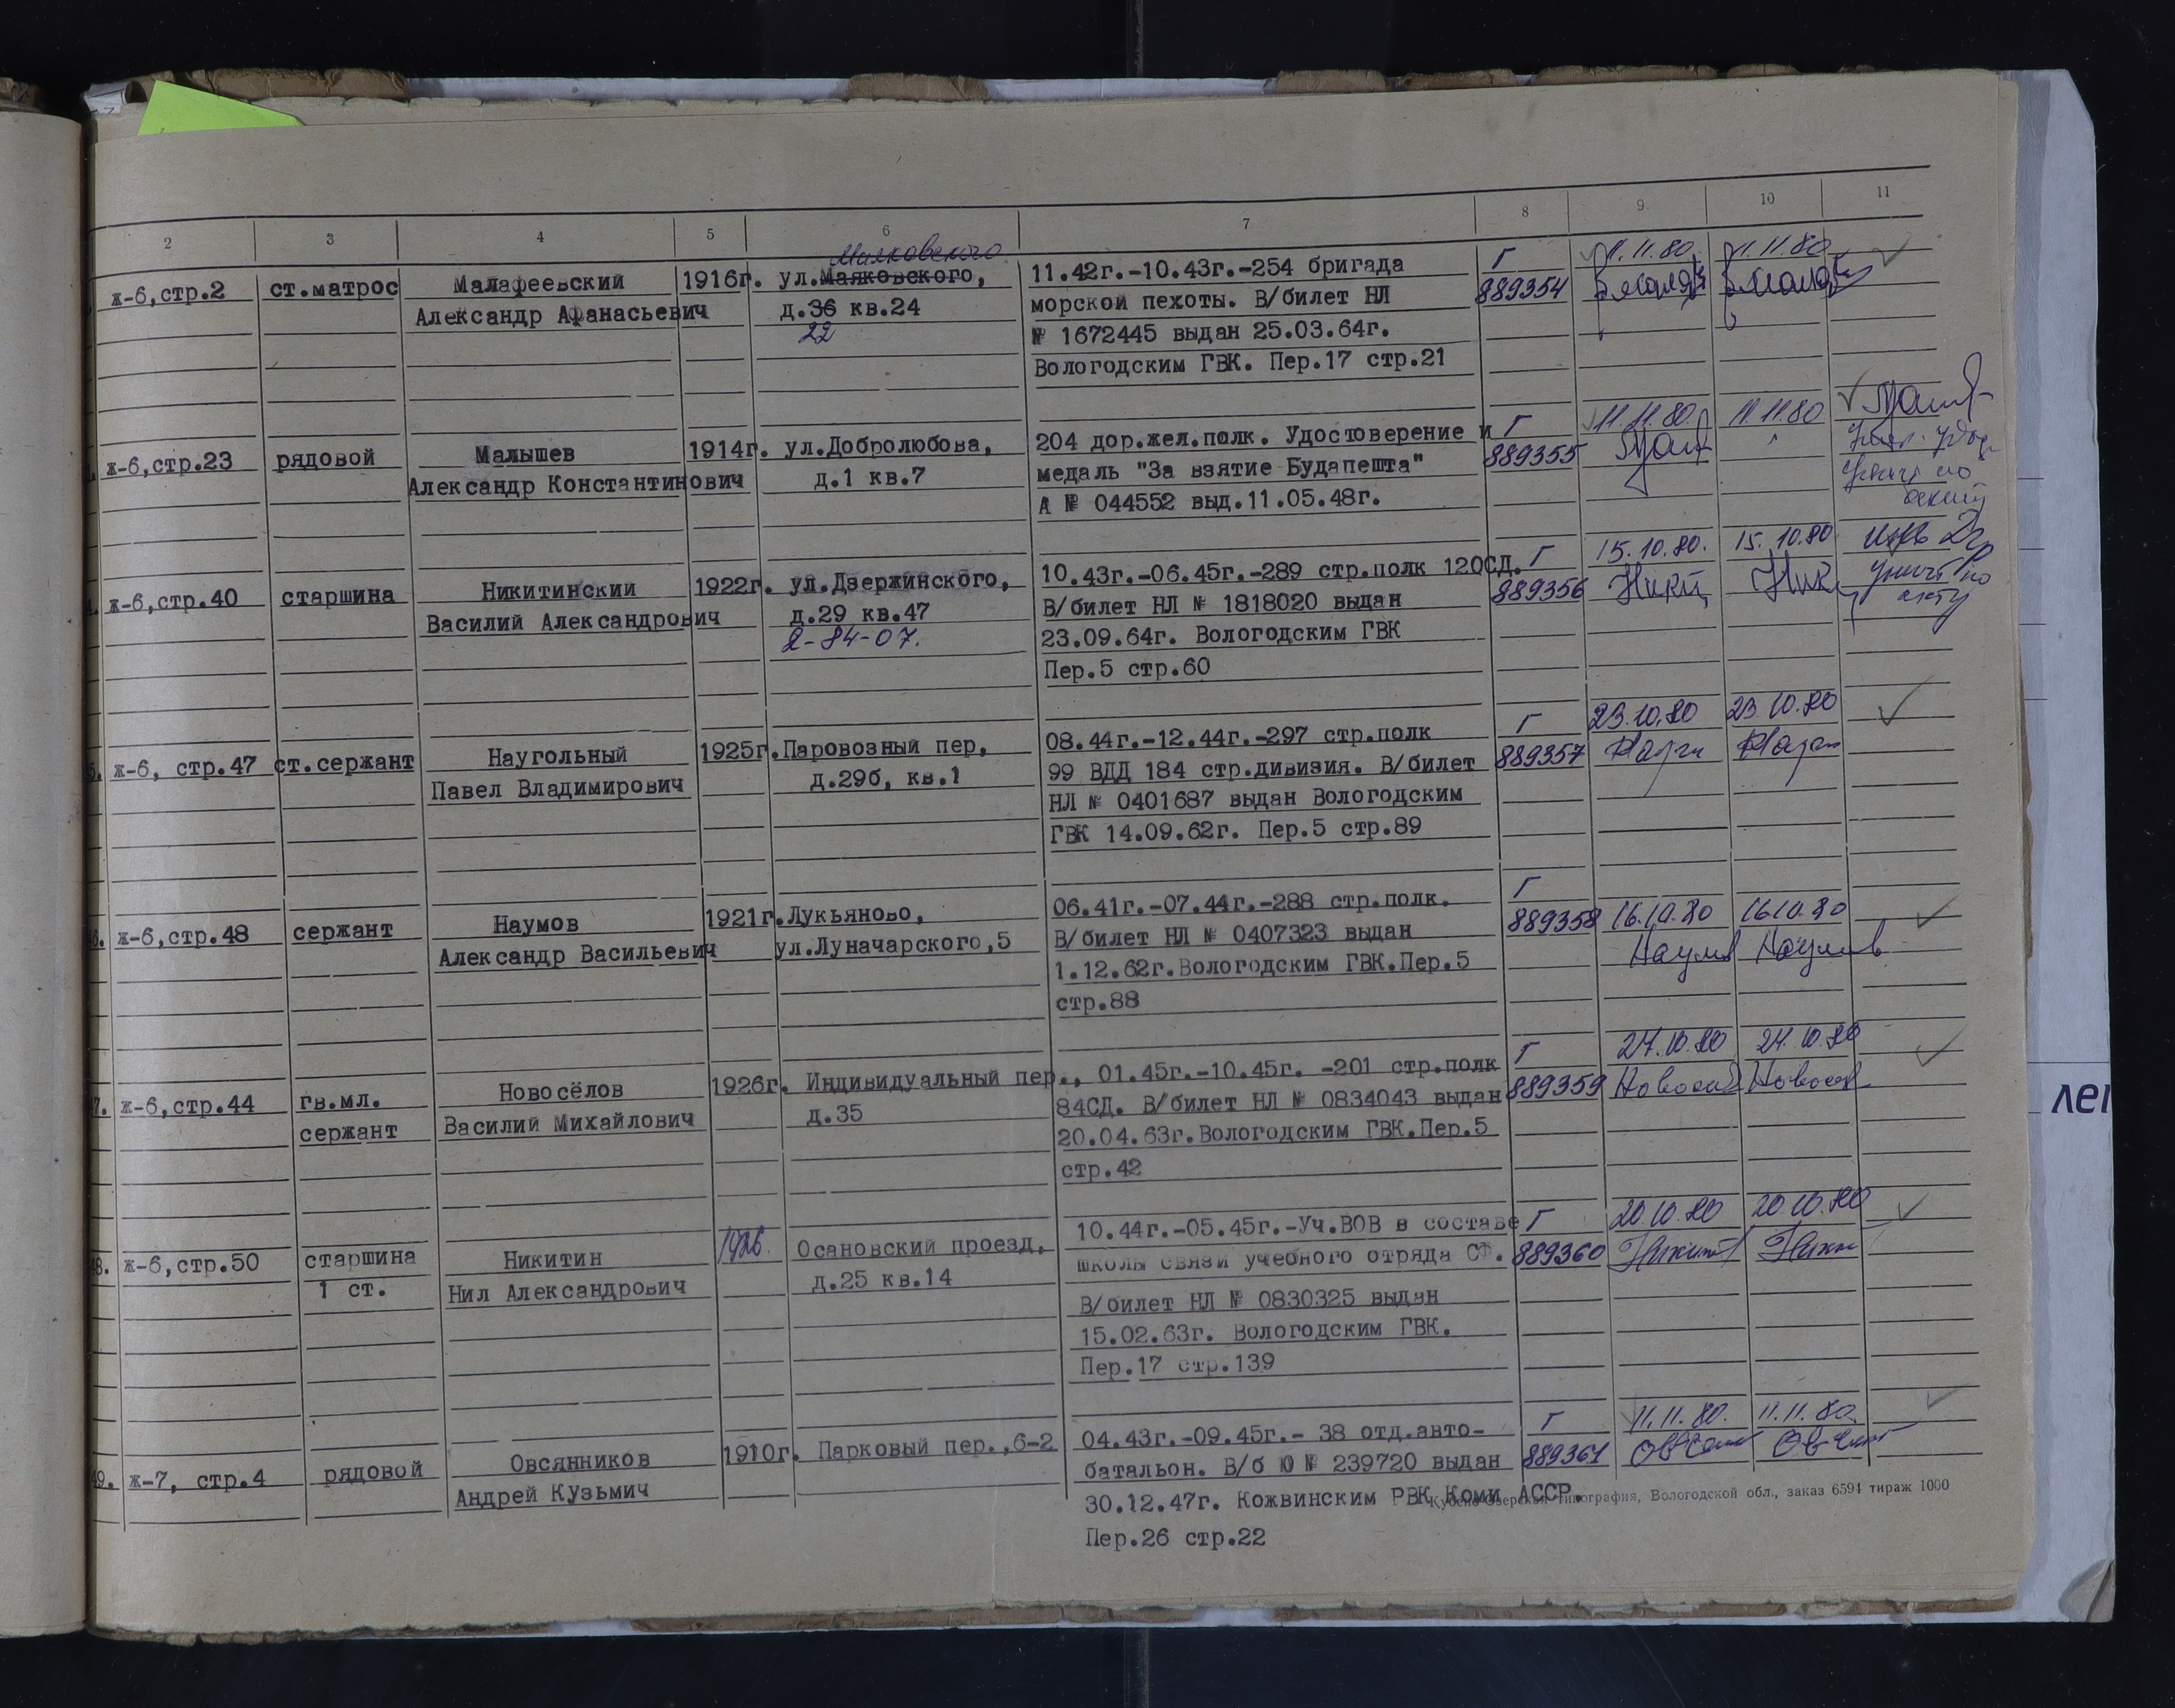 2 3 4 5 6 7 8 9 10 11
Маяковского
ж-6,стр.2 ст.матрос Малафеевский 1916г. ул.Маяковского, 11.42г.-10.43г.-254 бригада Г 11.11.80. 11.11.80
Александр Афанасьевич д.36 кв.24 морской пехоты. В/билет НЛ 889354
22 № 1672445 выдан 25.03.64г.
Вологодским ГВК. Пер.17 стр.21
ж-6,стр.23 рядовой Малышев 1914г. ул.Добролюбова, 204 дор.жел.полк. Удостоверение и Г 11.11.80. 11.11.80
Александр Константинович д.1 кв.7 медаль "За взятие Будапешта" 889355
А № 044552 выд.11.05.48г.
ж-6,стр.40 старшина Никитинский 1922г. ул.Дзержинского, 10.43г.-06.45г.-289 стр.полк 120СД. Г 15.10.80. 15.10.80
Василий Александрович д.29 кв.47 В/билет НЛ № 1818020 выдан 889356 по
2-84-07. 23.09.64г. Вологодским ГВК акту
Пер.5 стр.60
ж-6, стр.47 ст.сержант Наугольный 1925г. Паровозный пер, 08.44г.-12.44г.-297 стр.полк Г 23.10.80 23.10.80
Павел Владимирович д.29б, кв.1 99 ВДД 184 стр.дивизия. В/билет 889357
НЛ № 0401687 выдан Вологодским
ГВК 14.09.62г. Пер.5 стр.89
46. ж-6,стр.48 сержант Наумов 1921г. Лукьяново, 06.41г.-07.44г.-288 стр.полк. Г 16.10.80 16.10.80
Александр Васильевич ул.Луначарского,5 В/билет НЛ № 0407323 выдан 889358 Наумов Наумов
1.12.62г.Вологодским ГВК.Пер.5
стр.88
47. ж-6,стр.44 гв.мл. Новосёлов 1926г. Индивидуальный пер., 01.45г.-10.45г. -201 стр.полк Г 24.10.80 24.10.80
сержант Василий Михайлович д.35 84СД. В/билет НЛ № 0834043 выдан 889359
20.04.63г.Вологодским ГВК.Пер.5
стр.42
48. ж-6,стр.50 старшина Никитин 1926. Осановский проезд, 10.44г.-05.45г.-Уч.ВОВ в составе Г 20.10.80 20.10.80
1 ст. Нил Александрович д.25 кв.14 школы связи учебного отряда СФ. 889360
В/билет НЛ № 0830325 выдан
15.02.63г. Вологодским ГВК.
Пер.17 стр.139
49. ж-7, стр.4 рядовой Овсянников 1910г. Парковый пер.,6-2 04.43г.-09.45г.- 38 отд.авто- Г 11.11.80. 11.11.80.
Андрей Кузьмич батальон. В/б Ю № 239720 выдан 889361
30.12.47г. Кожвинским РВК Коми АССР.
Кубено-Озерская типография, Вологодской обл., заказ 6594 тираж 1000
Пер.26 стр.22